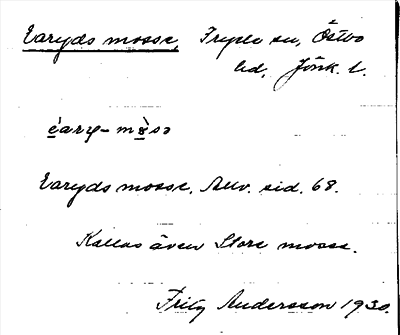 Earyds mosse, Tryser sn, Östbo
hd, Jönk. l.
èary- mòsə
Earyds mosse, Anv. sid. 68.
Kallas även Store mosse.
Fritz Andersson 1930.